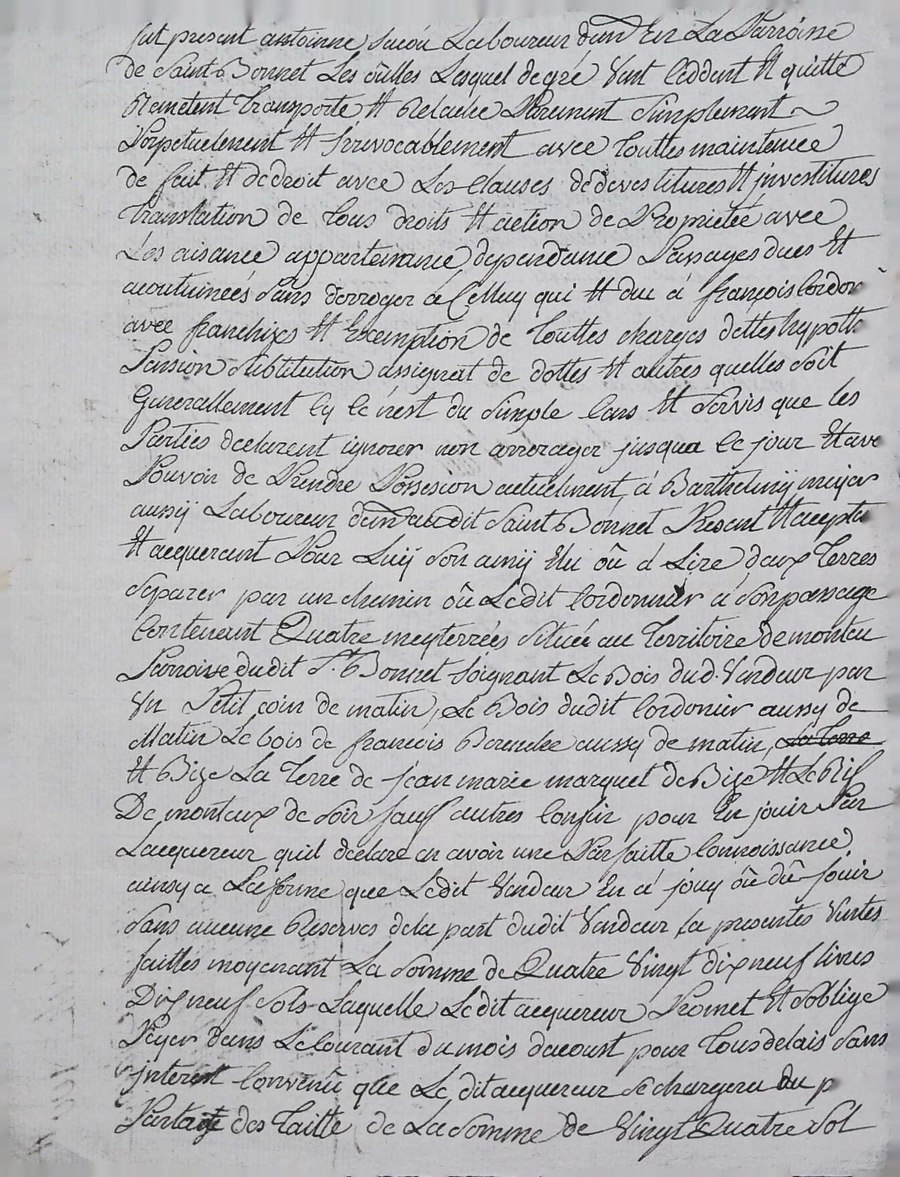 fut present antoinne Laboureur dem.t En La Parroisse
de Saint Bonnet Les oulles Lesquel de gré Vent Ceddent Et quitte
Remetent Transporte Et Relache Purement Simplement
Perpetuelement Et Irrevocablement avec Touttes maintenee
de fait Et de droit avec Les Clauses de devestitures Et jnvestitures
Translation de Tous droits Et action de Proprietée avec
Les aisance appartenance dependance Passages dues Et
acoutumées Sans derroger à Celluy qui Et du à françois Cordon
avec franchises Et Exemption de Touttes charges dettes hypott
Pansion Substitution assignat de dottes Et autres quelles soit
Generallement Cy Ce n'est du Simple Cens Et Servis que les
Parties declarent ignorer non arrerager jusqua Ce jour Et ave
Pouvoir de Prendre Possesion actuelment, à Barthelmij
aussy Laboureur dem.t audit Saint Bonnet Present Et accepta
Et acquerant Pour Luij Son amij Elu où à Lire deux Terres
Separer par un chemin où Ledit Cordonnier à Son passage
Contenant Quatre meyterrées Située au Territoire de montau
Parroisse dudit S.t Bonnet Joignant Le Bois dud. Vandeur par
Un Petit coin de matin, Le Bois dudit Cordonier aussy de
Matin Le bois de francois aussy de matin, La Terre
Et Bize La Terre de jean marie marquet de Bize Et Le Rif
De montaux de Soir Sauf autres Confin pour En jouir Par
Lacquereur quil declare en avoir une Parfaitte Connoissance
ainsy a La forme que Ledit Vandeur En à jouy où dû Jouir
Sans aucune Reserves de la part dudit Vandeur La presentes Ventes
faittes moyenant La Somme de Quatre Vingt dix neuf livres
Dix neuf Sols Laquelle Ledit acquereur Promet Et Soblige
Peyer dans Le Courant du mois daoust pour Tous delais Sans
jnterest Convenû que Le dit acquereur Se chargera du p
des Taille de La Somme de Vingt Quatre Sol